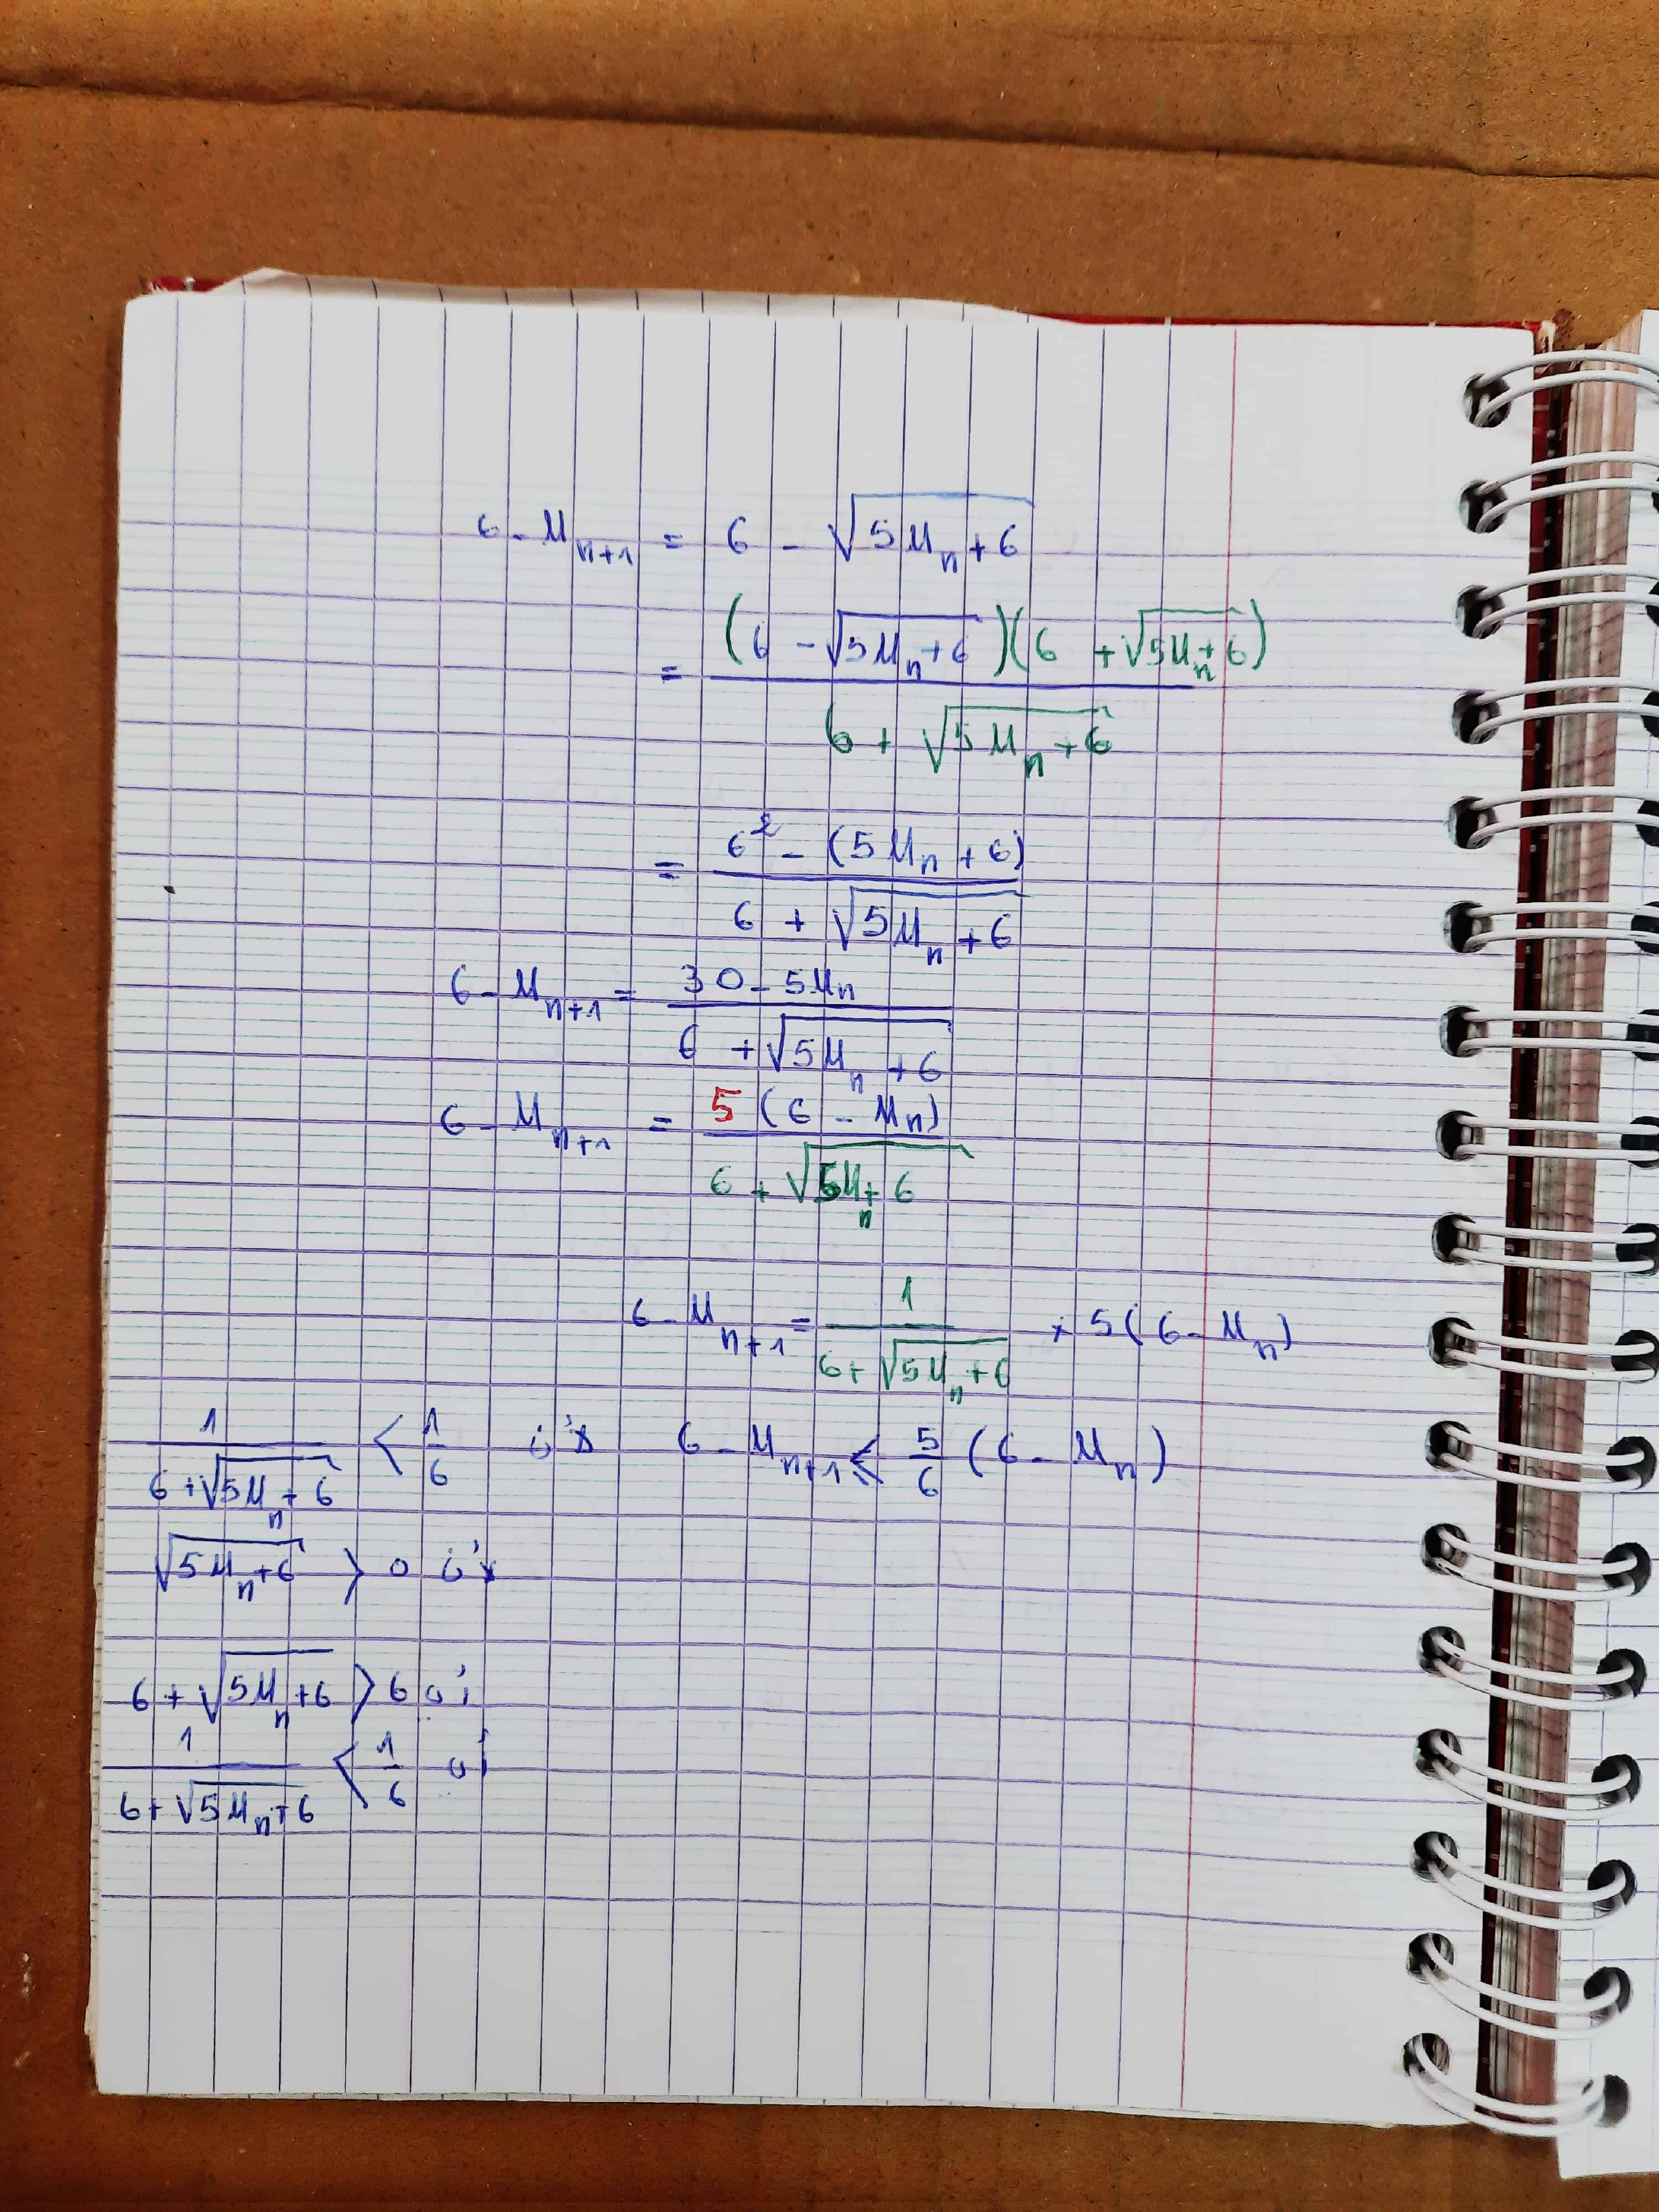 6 - U_{n+1} = 6 - √(5U_n + 6)
= (6 - √(5U_n + 6))(6 + √(5U_n + 6)) / (6 + √(5U_n + 6))
= (6² - (5U_n + 6)) / (6 + √(5U_n + 6))
6 - U_{n+1} = (30 - 5U_n) / (6 + √(5U_n + 6))
6 - U_{n+1} = 5(6 - U_n) / (6 + √(5U_n + 6))
6 - U_{n+1} = 1 / (6 + √(5U_n + 6)) × 5(6 - U_n)
1 / (6 + √(5U_n + 6)) < 1/6 6 - U_{n+1} ≤ 5/6 (6 - U_n)
√(5U_n + 6) > 0
6 + √(5U_n + 6) > 6
1 / (6 + √(5U_n + 6)) < 1/6